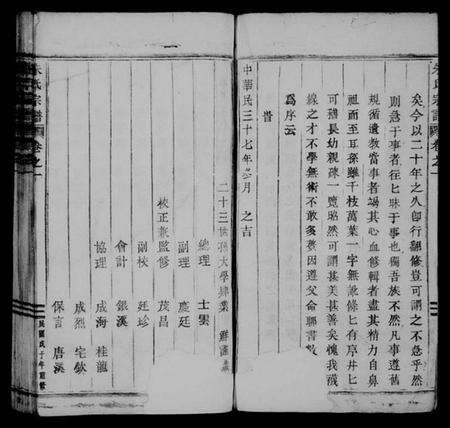 朱氏宗譜 卷之一
矣今以二十年之久卽行翻修豈可謂之不急乎然
則急于事者往匕昧于事也獨吾族不然凡事遵舊
規循遺教當事者竭其心血修輯者盡其精力自鼻
祖而至耳孫雖千枝萬葉一字無訛條匕有序井匕
可稽長幼親疎一覽昭然可謂甚美甚善矣愧我淺
線之才不學無術不敢多贅因遵父命聊書數
爲序云
旹
中華民三十七年 月 之吉
二十三世孫大學肄業
總理 士雲
副理 慶廷
校正兼監修 茂昌
副校 廷珍
會計 銀溪
協理 成海 桂龍
成烈 宅欽
保言 唐溪
氏宗譜 卷之一
民國戊子年重修